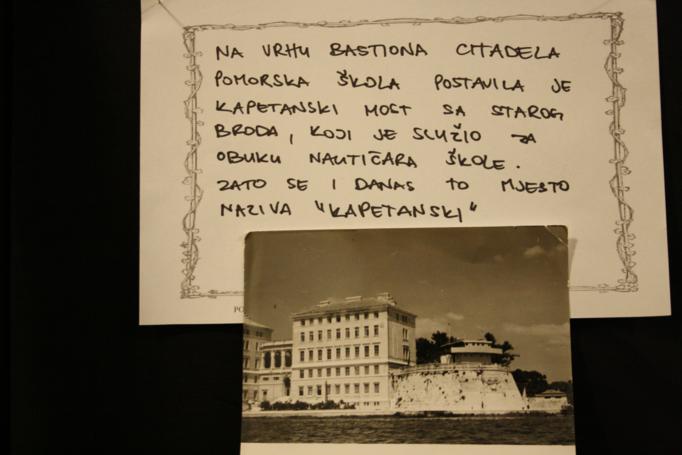 NA VRHU BASTIONA CITADELA
POMORSKA ŠKOLA POSTAVILA JE
KAPETANSKI MOST SA STAROG
BRODA, KOJI JE SLUŽIO ZA
OBUKU NAUTIČARA ŠKOLE.
ZATO SE I DANAS TO MJESTO
NAZIVA "KAPETANSKI"
PO